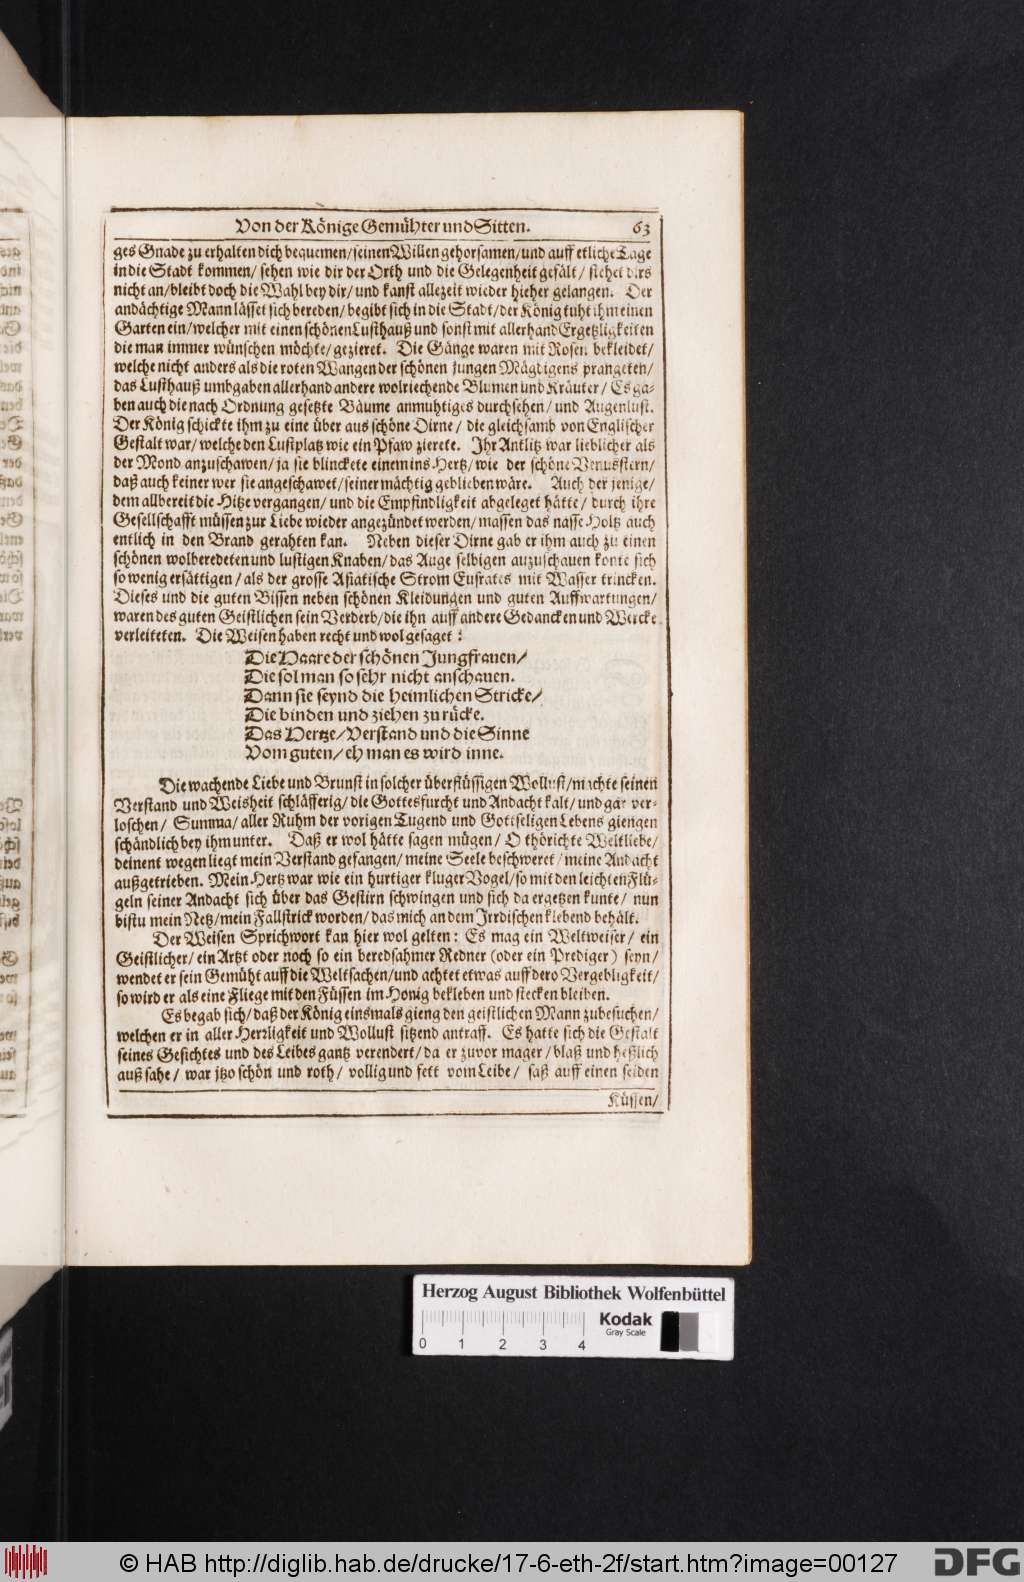 Von der Könige Gemühter und Sitten. 63
ges Gnade zu erhalten dich bequemen/ seinen Willen gehorsamen/ und auff etliche Tage
in die Stadt kommen/ sehen wie dir der Orth und die Gelegenheit gefält/ stehet dirs
nicht an/ bleibt doch die Wahl bey dir/ und kanst allezeit wieder hieher gelangen. Der
andächtige Mann lässet sich bereden/ begibt sich in die Stadt/ der König tuht ihm einen
Garten ein/ welcher mit einen schönen Lusthauß und sonst mit allerhand Ergetzligkeiten
die man immer wünschen möchte/ gezieret. Die Gänge waren mit Rosen bekleidet/
welche nicht anders als die roten Wangen der schönen jungen Mägdigens prangeten/
das Lusthauß umbgaben allerhand andere wolriechende Blumen und Kräuter/ Es ga-
ben auch die nach Ordnung gesetzte Bäume anmuhtiges durchsehen/ und Augenlust.
Der König schickte ihm zu eine über aus schöne Dirne/ die gleichsamb von Englischer
Gestalt war/ welche den Lustplatz wie ein Pfaw zierete. Ihr Antlitz war lieblicher als
der Mond anzuschawen/ ja sie blinckete einem ins Hertz/ wie der schöne Venusstern/
daß auch keiner wer sie angeschawet/ seiner mächtig geblieben wäre. Auch der jenige/
dem allbereit die Hitze vergangen/ und die Empfindligkeit abgeleget hätte/ durch ihre
Gesellschafft müssen zur Liebe wieder angezündet werden/ massen das nasse Holtz auch
entlich in den Brand gerahten kan. Neben dieser Dirne gab er ihm auch zu einen
schönen wolberedeten und lustigen Knaben/ das Auge selbigen anzuschauen konte sich
so wenig ersättigen/ als der grosse Asiatische Strom Eufrates mit Wasser trincken.
Dieses und die guten Bissen neben schönen Kleidungen und guten Auffwartungen/
waren des guten Geistlichen sein Verderb/ die ihn auff andere Gedancken und Wercke
verleiteten. Die Weisen haben recht und wol gesaget:
Die Haare der schönen Jungfrauen/
Die sol man so sehr nicht anschauen.
Dann sie seynd die heimlichen Stricke/
Die binden und ziehen zu rücke.
Das Hertze/ Verstand und die Sinne
Vom guten/ eh man es wird inne.
Die wachende Liebe und Brunst in solcher überflüssigen Wollust/ machte seinen
Verstand und Weisheit schläfferig/ die Gottesfurcht und Andacht kalt/ und gar ver-
loschen/ Summa/ aller Ruhm der vorigen Tugend und Gottseligen Lebens giengen
schändlich bey ihm unter. Daß er wol hätte sagen mügen/ O thörichte Weltliebe/
deinent wegen liegt mein Verstand gefangen/ meine Seele beschweret/ meine Andacht
außgetrieben. Mein Hertz war wie ein hurtiger kluger Vogel/ so mit den leichten Flü-
geln seiner Andacht sich über das Gestirn schwingen und sich da ergetzen kunte/ nun
bistu mein Netz/ mein Fallstrick worden/ das mich an dem Irrdischen klebend behält.
Der Weisen Sprichwort kan hier wol gelten: Es mag ein Weltweiser/ ein
Geistlicher/ ein Artzt oder noch so ein beredsahmer Redner (oder ein Prediger) seyn/
wendet er sein Gemüht auff die Weltsachen/ und achtet etwas auff dero Vergebligkeit/
so wird er als eine Fliege mit den Füssen im Honig bekleben und stecken bleiben.
Es begab sich/ daß der König einsmals gieng den geistlichen Mann zubesuchen/
welchen er in aller Herrligkeit und Wollust sitzend antraff. Es hatte sich die Gestalt
seines Gesichtes und des Leibes gantz verendert/ da er zuvor mager/ blaß und heßlich
auß sahe/ war jtzo schön und roth/ vollig und fett vom Leibe/ saß auff einen seiden
Küssen/
Herzog August Bibliothek Wolfenbüttel
0 1 2 3 4
Kodak
Gray Scale
© HAB http://diglib.hab.de/drucke/17-6-eth-2f/start.htm?image=00127
DFG